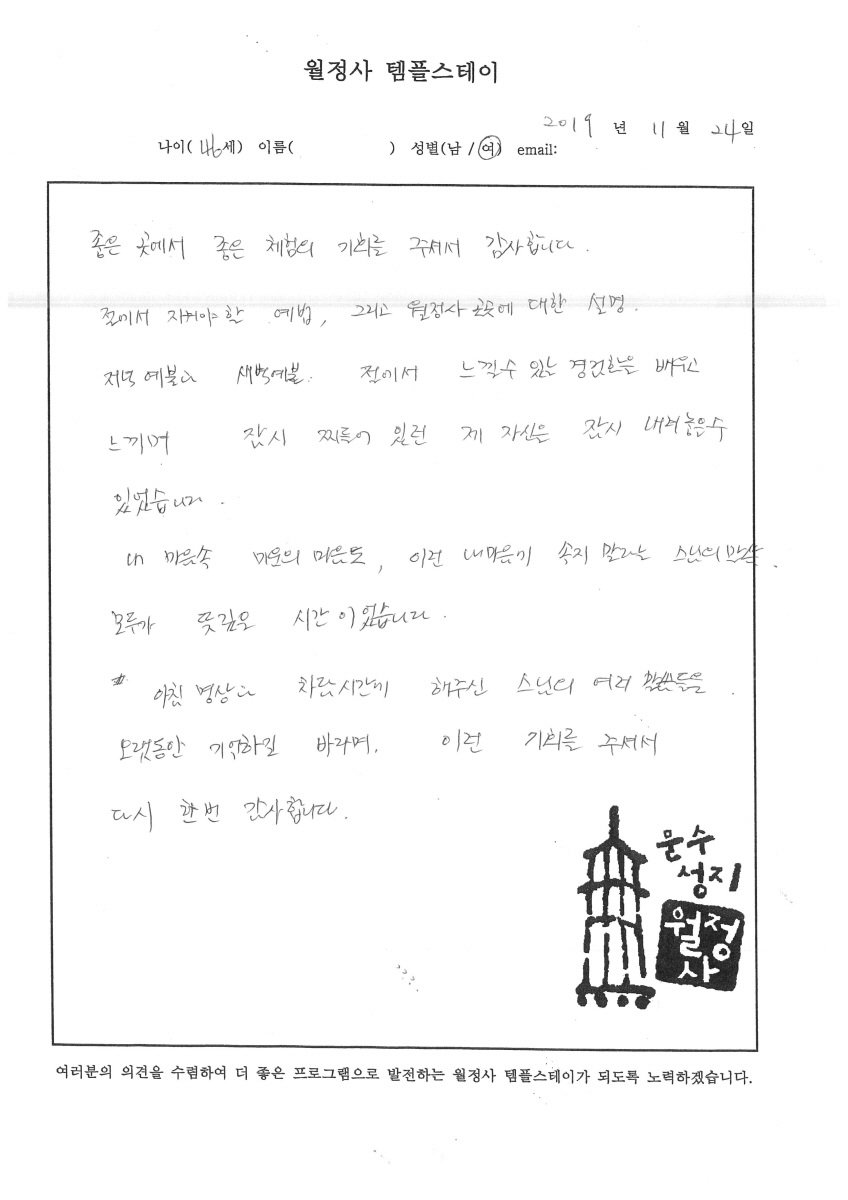 월정사 템플스테이
2019 년 11 월 24일
나이( 46세) 이름( ) 성별(남 / 여) email:
좋은 곳에서 좋은 체험의 기회를 주셔서 감사합니다.
절에서 지켜야할 예법, 그리고 월정사 곳곳에 대한 설명.
저녁예불과 새벽예불. 절에서 느낄수 있는 경건함을 배우고
느끼며 잠시 찌들어 있던 제 자신을 잠시 내려놓을수
있었습니다.
내 마음속 미움의 마음도, 이런 내마음에 속지 말라는 스님의 말씀.
모두가 뜻깊은 시간이었습니다.
# 아침 명상과 차담시간에 해주신 스님의 여러 말씀들을
오랫동안 기억하길 바라며, 이런 기회를 주셔서
다시 한번 감사합니다.
문수
성지
월정
사
여러분의 의견을 수렴하여 더 좋은 프로그램으로 발전하는 월정사 템플스테이가 되도록 노력하겠습니다.